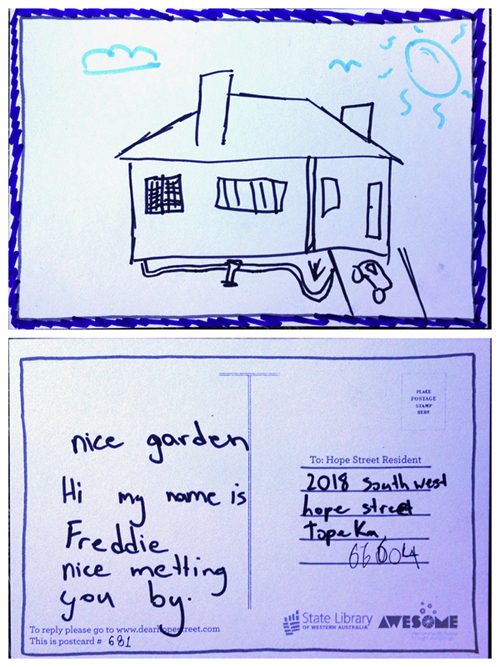 nice garden
Hi my name is
Freddie
nice metting
you by.
To reply please go to www.dearhopestreet.com
This is postcard # 681
PLACE
POSTAGE
STAMP
HERE
To: Hope Street Resident
2018 South west
hope street
Tope Ka,
66604
State Library
OF WESTERN AUSTRALIA
AWESOME